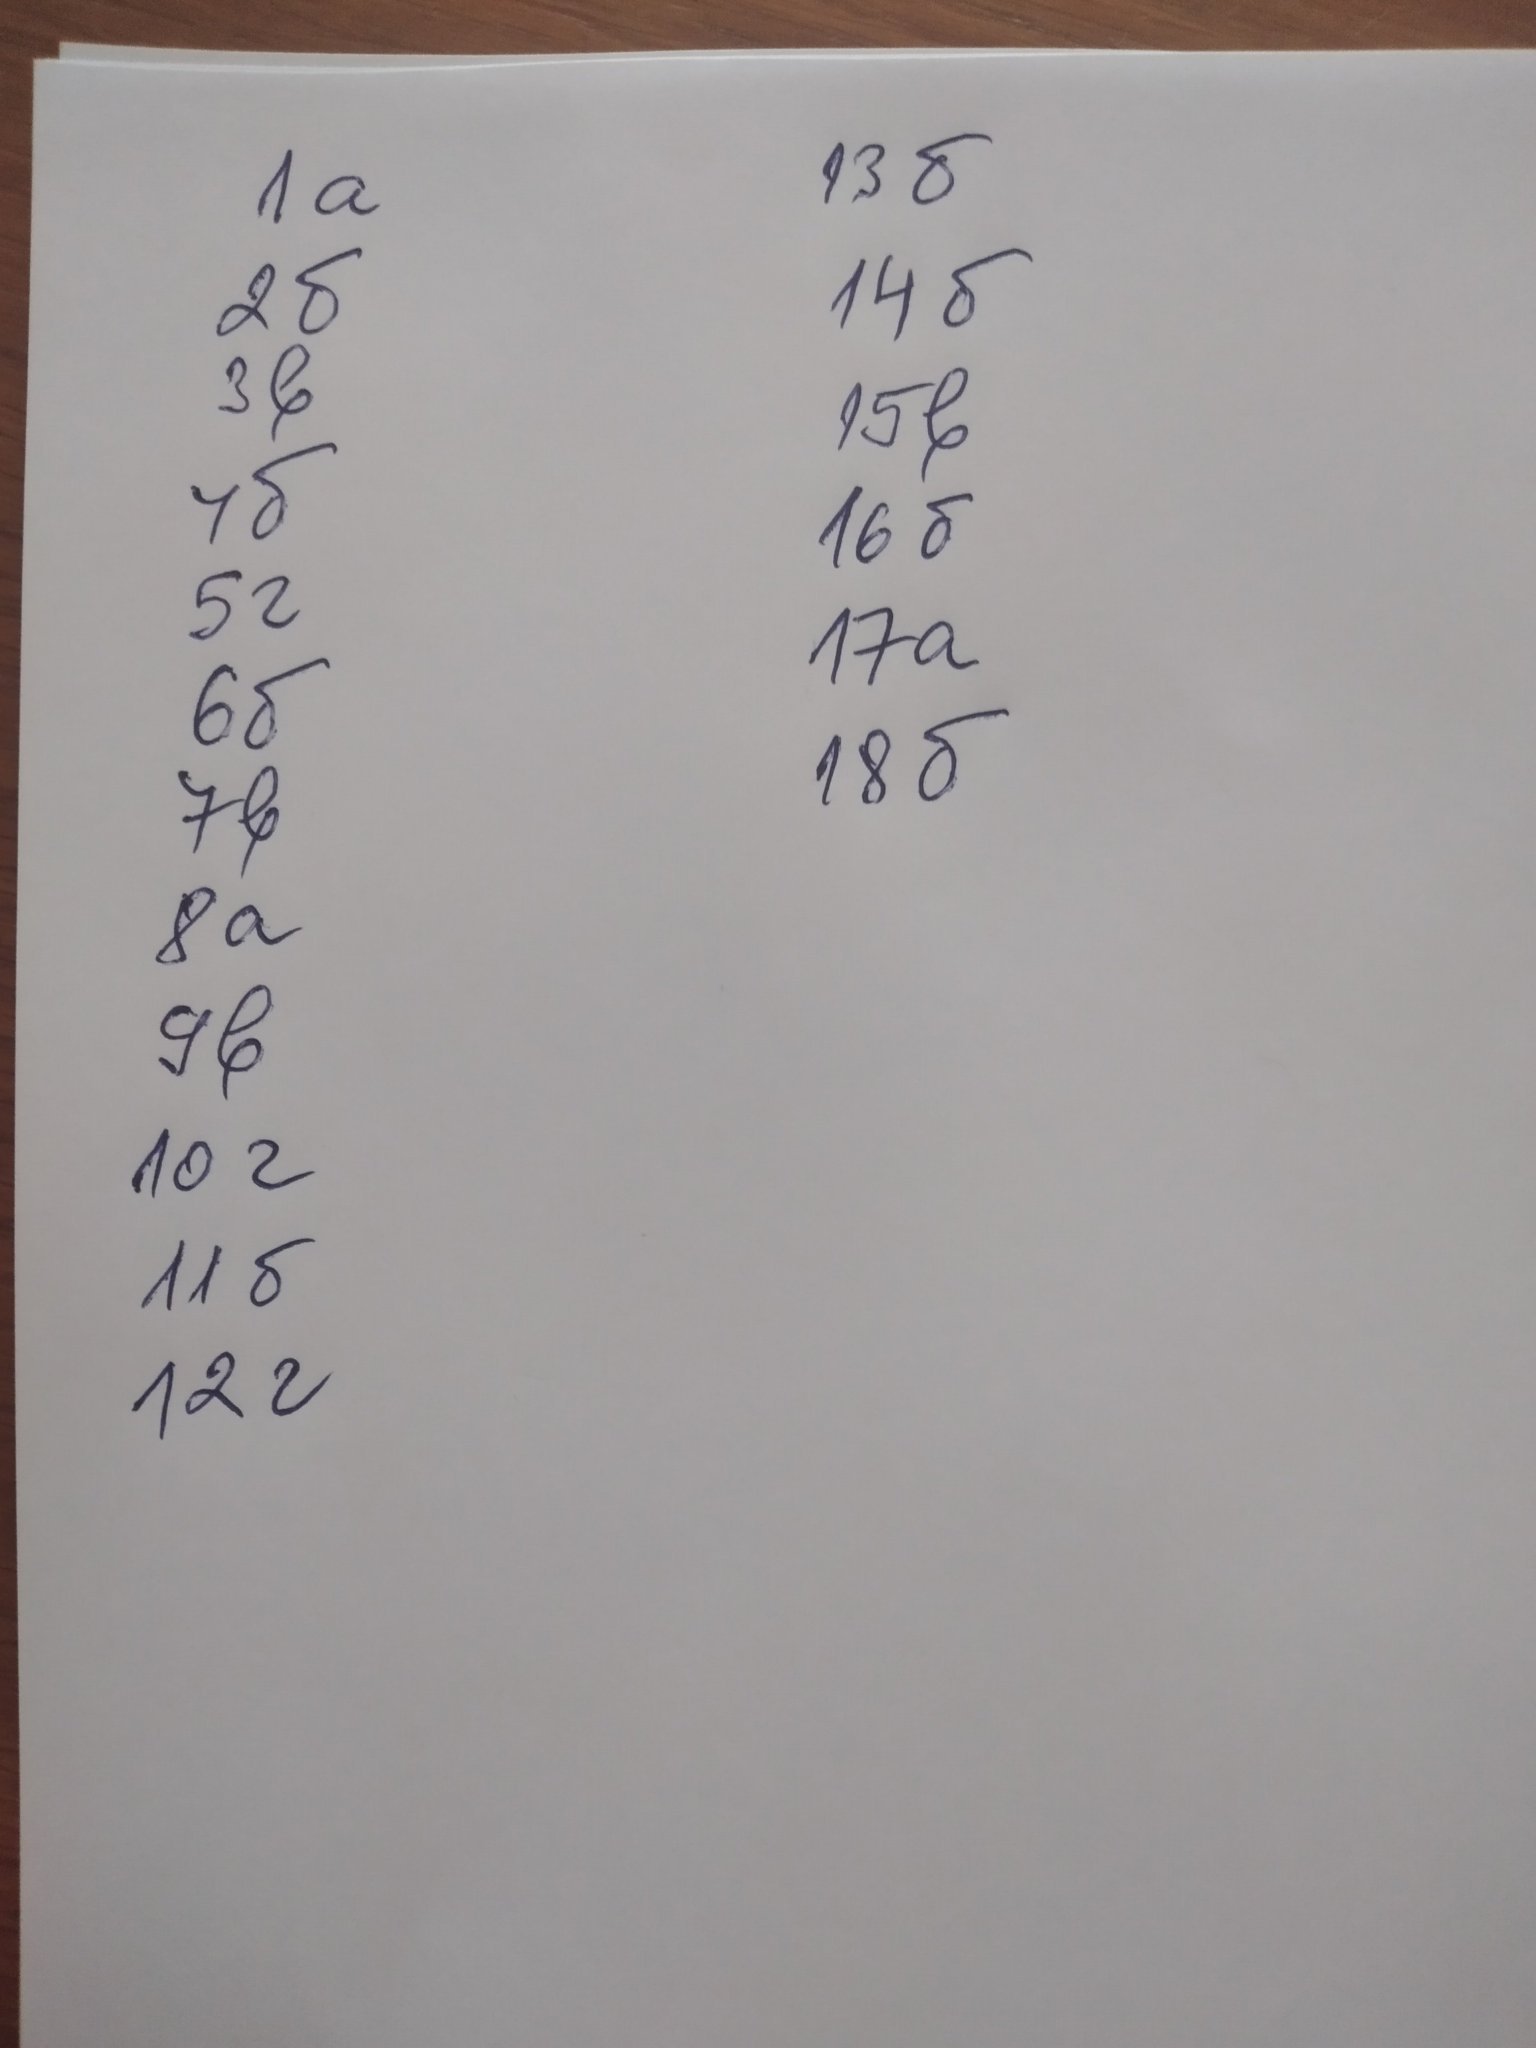 1а
2б
3в
4б
5г
6б
7в
8а
9в
10г
11б
12г
13б
14б
15в
16б
17а
18б